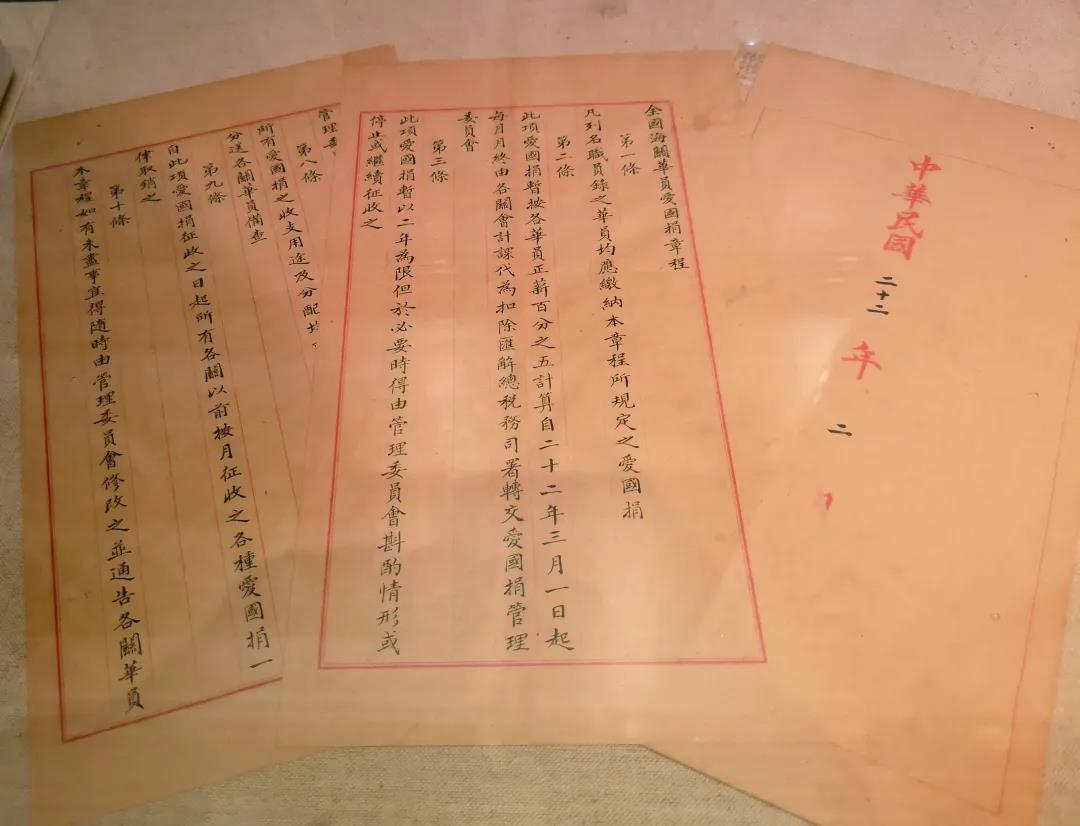 中華民國
二十二
年
二
全國海關華員愛國捐章程
第一條
凡列名職員錄之華員均應繳納本章程所規定之愛國捐
第二條
此項愛國捐暫按各華員正薪百分之五計算自二十二年三月一日起
每月月終由各關會計課代為扣除匯解總税務司署轉交愛國捐管理
委員會
第三條
此項愛國捐暫以二年為限但於必要時得由管理委員會斟酌情形或
停止或繼續征收之
管理委
第八條
所有愛國捐之收支用途及分配
分送各關華員備查
第九條
自此項愛國捐征收之日起所有各關以前按月征收之各種愛國捐一
律取銷之
第十條
本章程如有未盡事宜得隨時由管理委員會修改之並通告各關華員